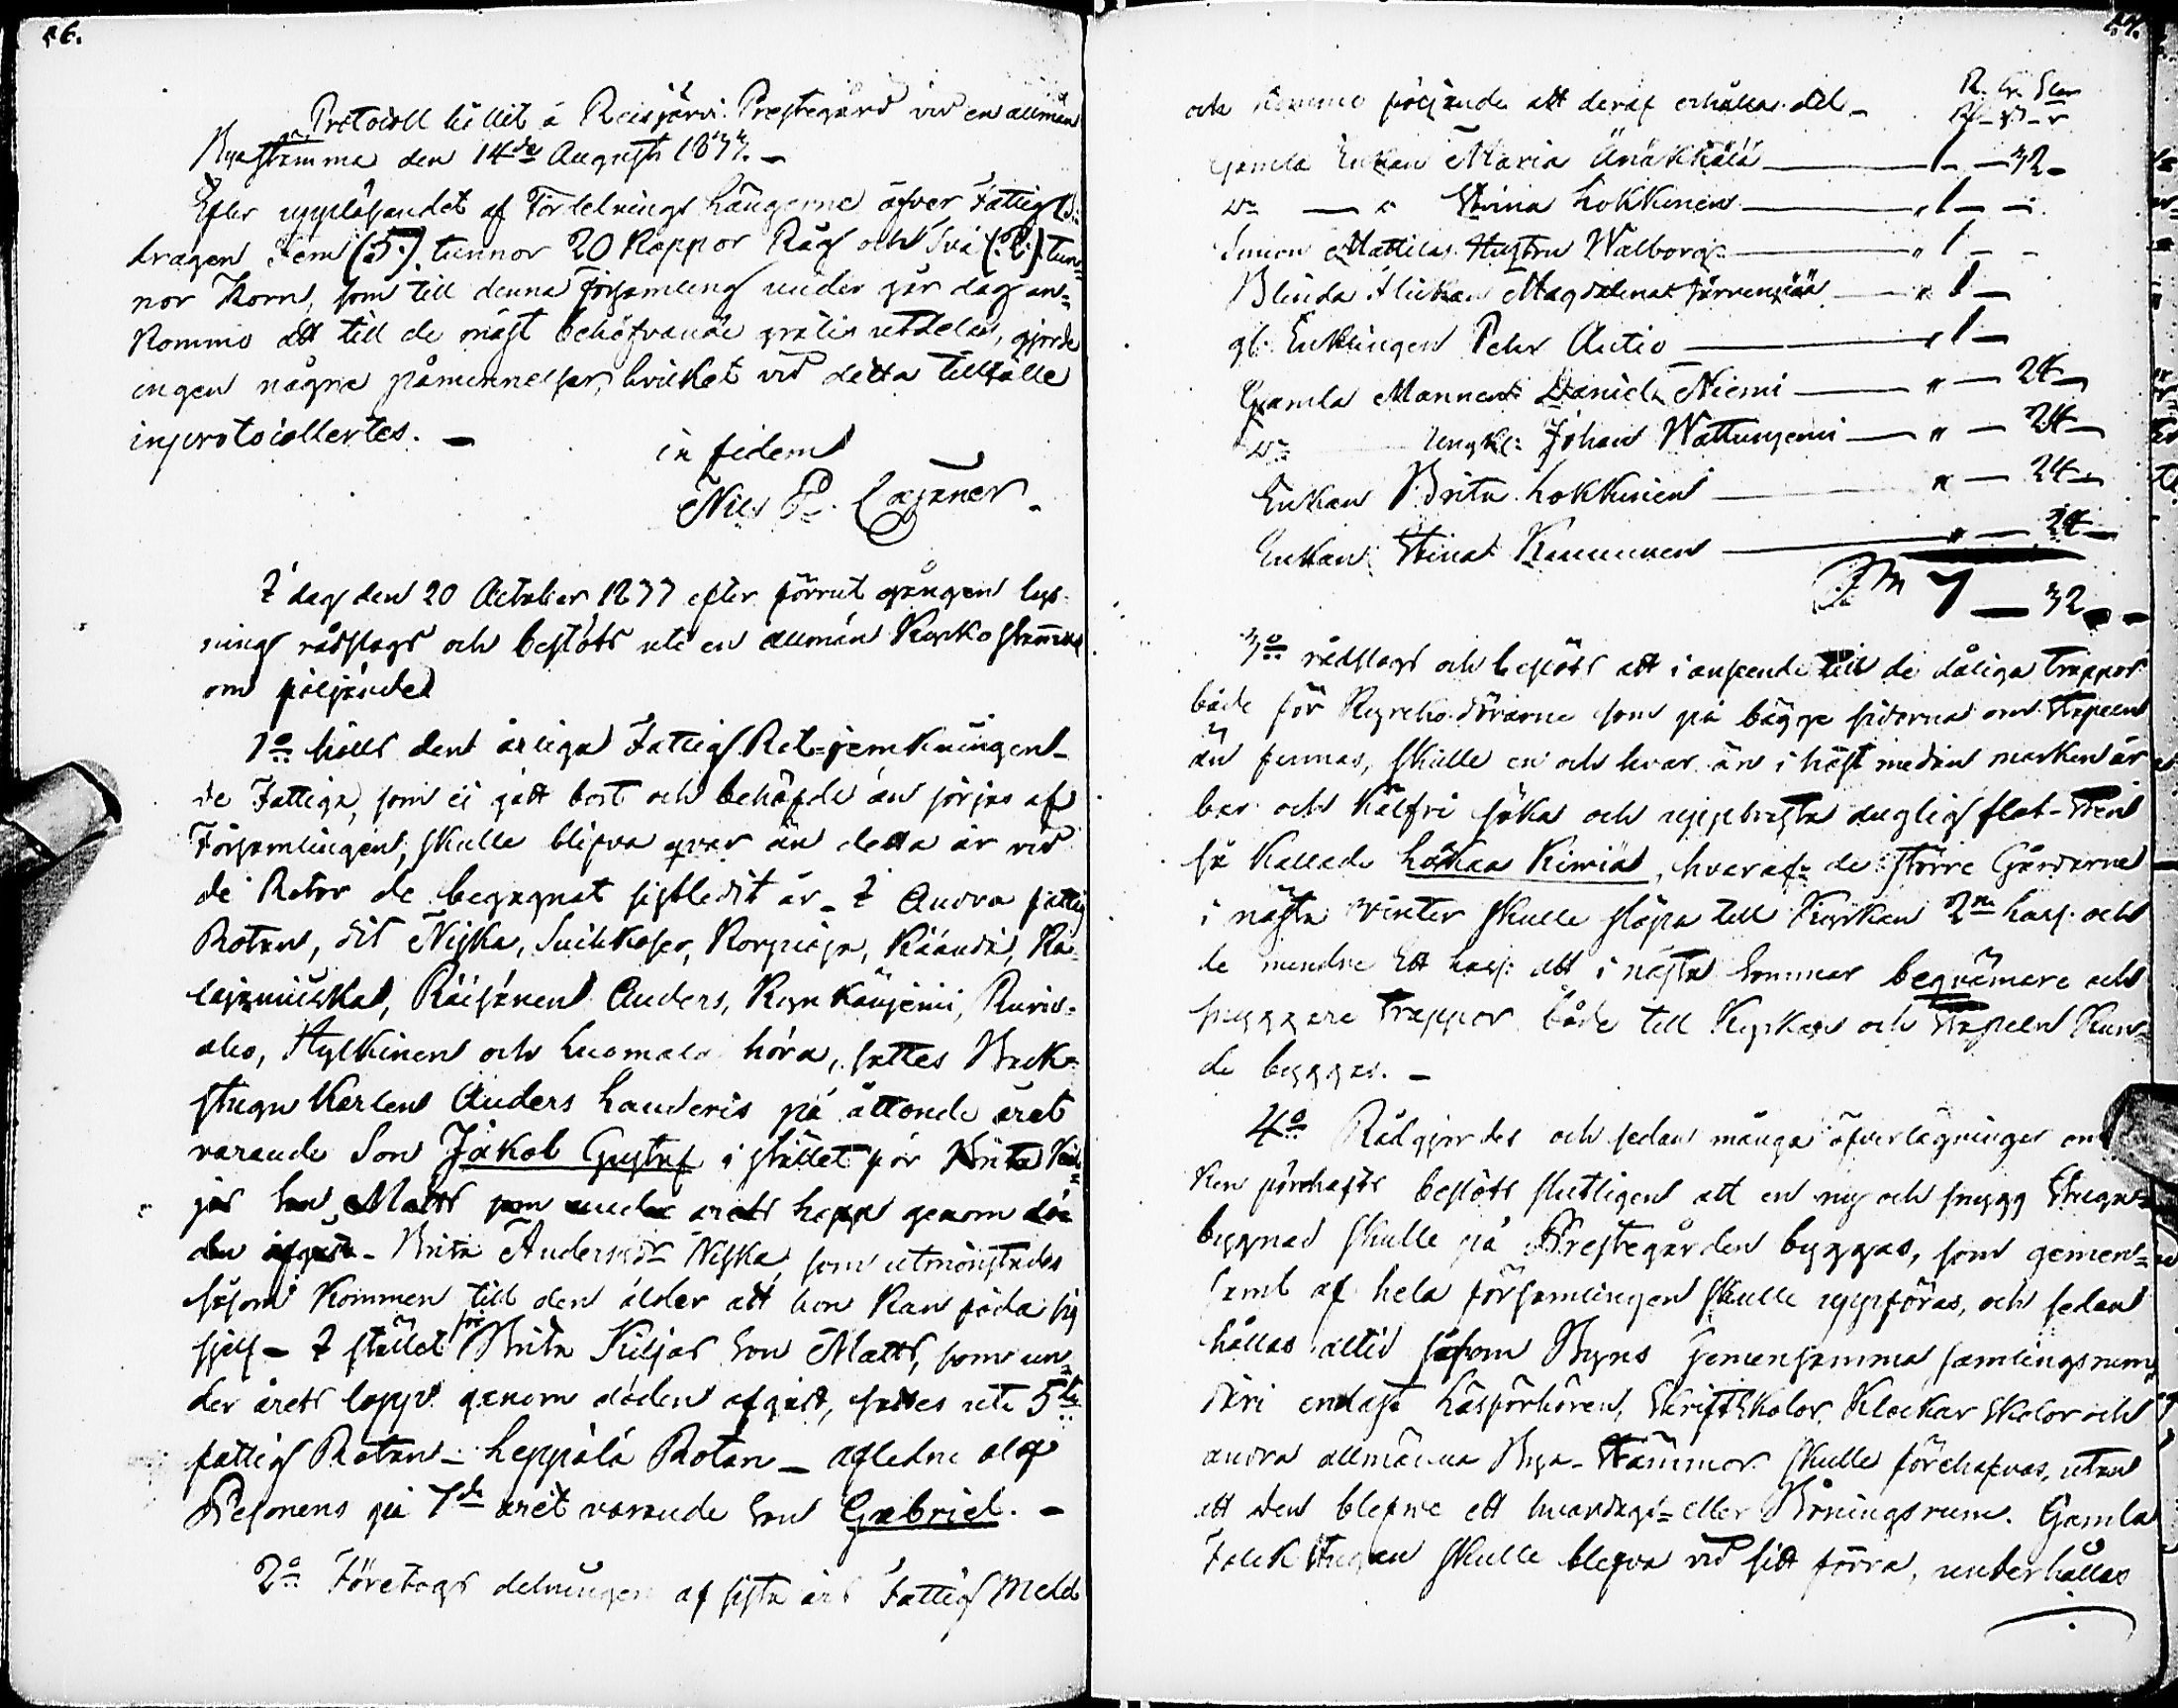 26.
Protocoll hållit å Reisjärvi Prestegård vid en allmän
Byastämma den 14de Augusti 1837. –
Efter uppläsandet af Fördelnings Längerne öfver Fattig bi-
dragen Fem (5.) tunnor 20 Kappor Råg och två (2.) tun-
nor Korn, som till denna Församling under går dag an-
kommo att till de mäst behöfvande gratis utdelas, gjorde
ingen någre påminnelser, hvilket vid detta tillfälle
inprotocollertes. –
in fidem
Nils P. Cajaner.
I dag den 20 October 1837 efter förrut gången lys-
ning rådslogs och beslöts uti en allmän Kyrko stämma
om följande
1o hölls den årliga Fattig Rot-jemkningen
de Fattiga, som ej gått bort och behöfde än sörjas af
Församlingen, skulle blifva qvar än detta år vid
de Rotor de begagnat sistledit år – I Andra fattig
Rotan, dit Niska, Korpioja, Räändä, Ka-
lajamuska, Räisänen Anders, Ruris-
aho, Hylkinen och Luomala höra, sattes Back-
stugu Karlen Anders Landeris på åttonde året
varande Son Jakob Gustaf i stället för Brita Kil-
jas Son Matts som under årets lopp genom dö-
den afgått – Brita Andersdr Niska som utmönstrades
såsom Kommen till den ålder att hon kan föda sig
sjelf – I stället för Brita Kiljas Son Matts, som un-
der årets lopp genom döden afgått, sattes uti 5te
fattig Rotan – Leppälä Rotan – afledne olof
Pesonens på 7de året varande Son Gabriel. –
2o Företogs delningen af sista års Fattig Medel
27.
och komma följande att deraf erhålla del –
R. Sr.
Gamla Enkan Maria Änäkkälä – 1 – 32 –
Do – " Stina Lokkinen – " 1 – –
Simon Mattilas Hustru Walborg – " 1 – –
Blinda Flickan Magdalena Järvenpää – " 1 –
gl. Enklingen Pehr Autio – " 1 –
Gamla Mannen Daniel Niemi – " – 24 –
Do Ungkl: Johan Wattunjemi – " – 24 –
Enkan Brita Lokkinen – " – 24 –
Enkan Stina – " – 24 –
Sm 7 – 32 –
3o rådslogs och beslöts att i anseende till de dåliga trappor
både för Kyrko dörarne som på bägge sidorna om Stapeln
än finnas, skulle en och hvar än i höst medan marken är
bar och kälfri söka och uppbrysta duglig flat-sten
så kallade Laakaa Kiwiä, hvaraf de större Gårdarne
i nästa vinter skulle släpa till Kyrkan 2ne lass och
de mindre Ett lass: att i nästa Sommar beqvämare och
snyggare trappor både till Kyrkan och Stapeln kun-
de byggas. –
4o Rådgjordes och sedan många öfverlägningar om
ken förehafts beslöts slutligen att en ny och snygg Stuga-
byggnad skulle på Prestegården byggas, som gemen-
samt af hela församlingen skulle uppföras, och sedan
hållas alltid såsom Byns Gemensamma samlingsrum,
däri endast Läsförhören, Skriftskolor, Klockar Skolor och
andra allmänna Bya-Stämmor skulle förehafvas, utan
att den blefve ett hvardags- eller Böningsrum. Gamla
Folck Stugan skulle blifva vid sitt förra, underhållas